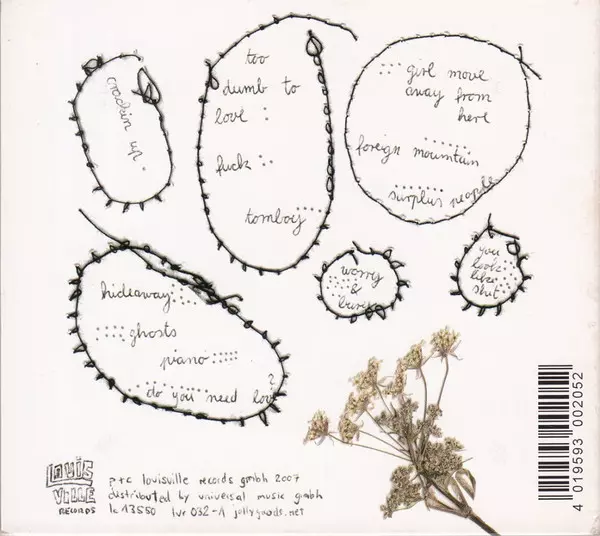 crackin up.
too
dumb to
love :
fuck :.
tomboy
girl move
away from
here
foreign mountain
surplus people
worry
&
bury
you
look
like
shit
hideaway
ghosts
piano
do you need love?
LOUIS
VILLE
RECORDS
p+c louisville records gmbh 2007
distributed by universal music gmbh
lc 13550 lvr 032-1 jollygoods.net
4 019593 002052